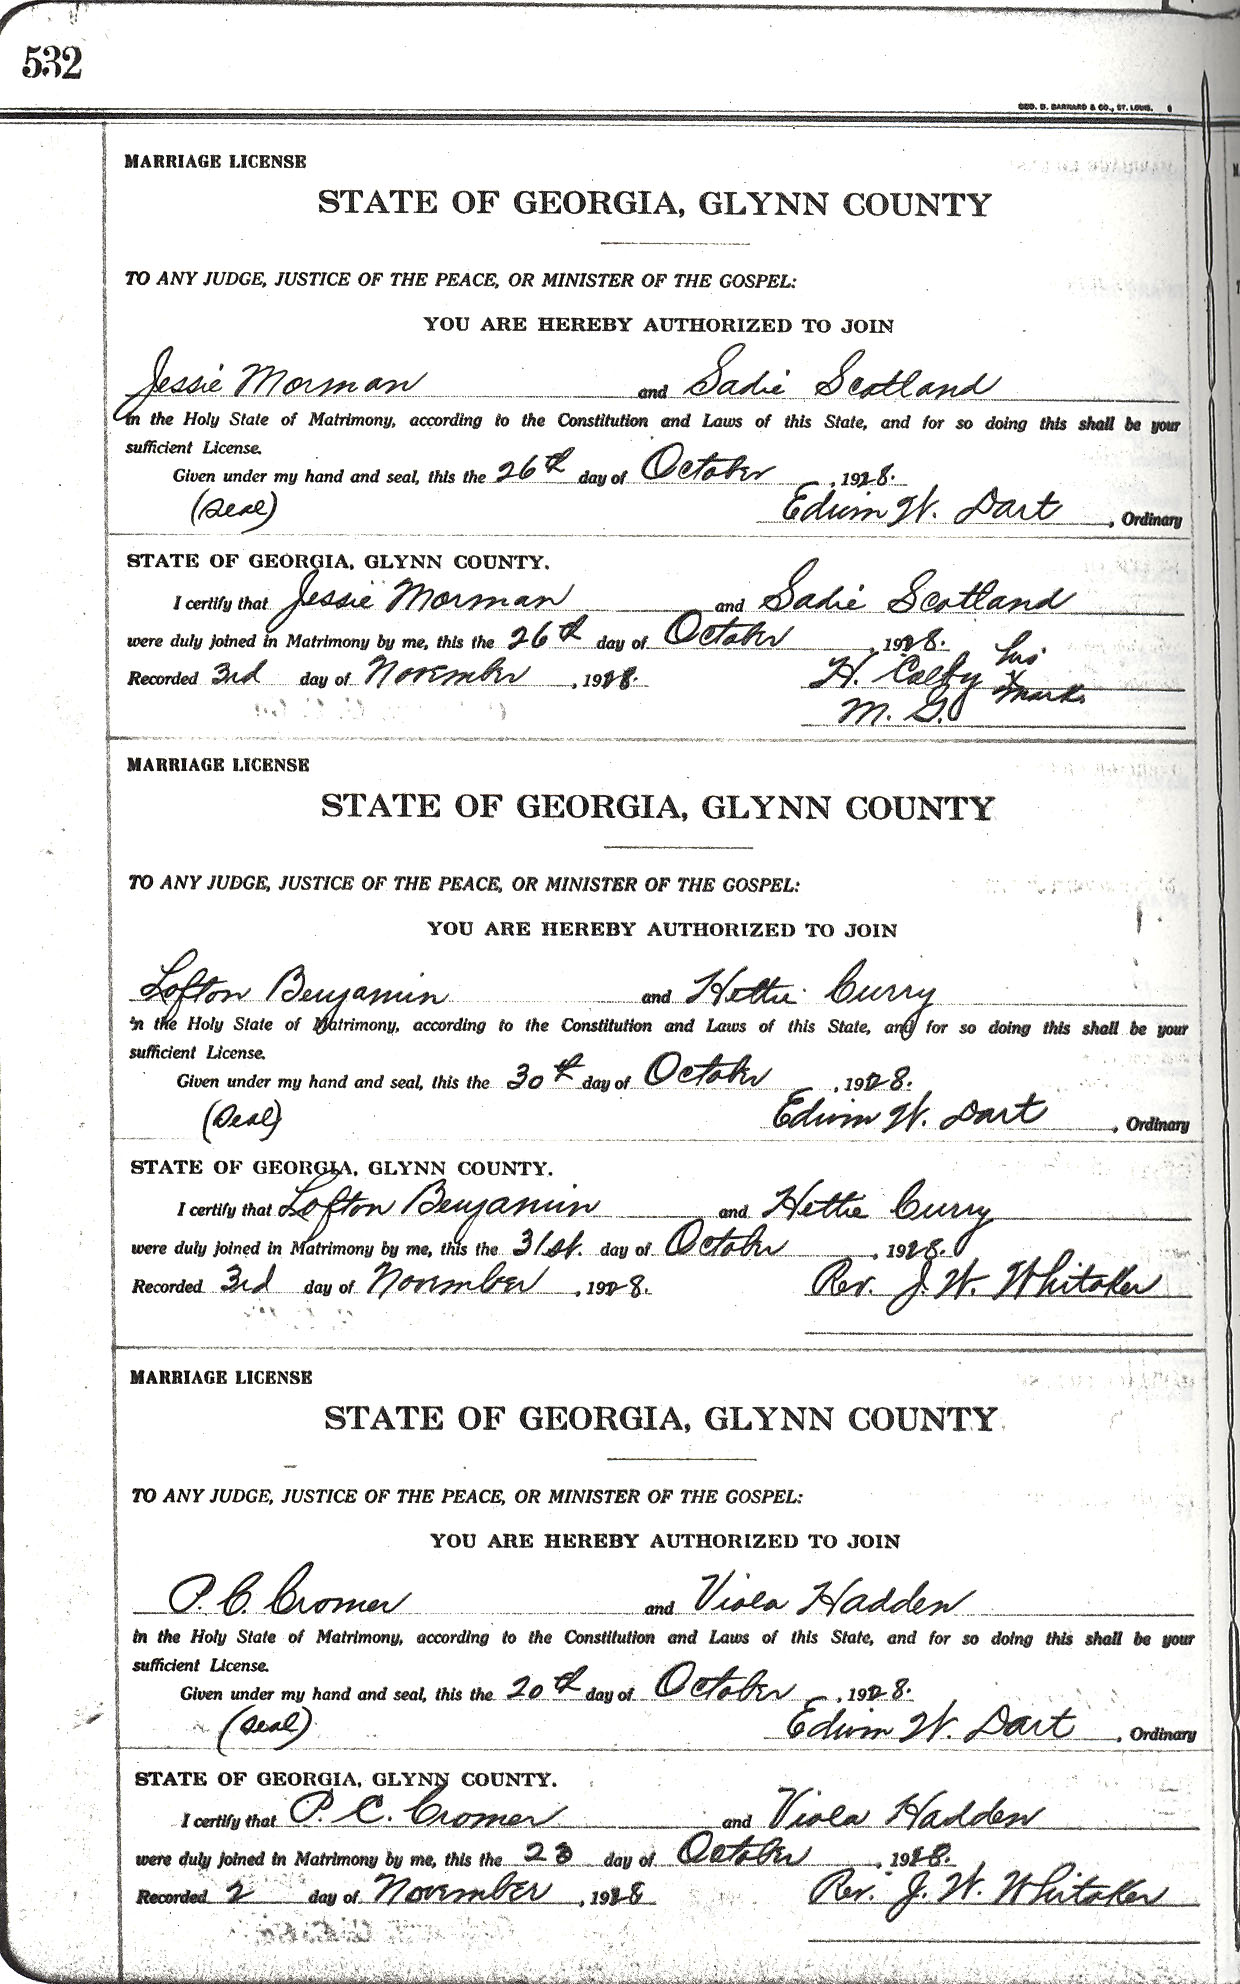 532
GEO. D. BARNARD & CO., ST. LOUIS. 6
MARRIAGE LICENSE
STATE OF GEORGIA, GLYNN COUNTY
TO ANY JUDGE, JUSTICE OF THE PEACE, OR MINISTER OF THE GOSPEL:
YOU ARE HEREBY AUTHORIZED TO JOIN
Jessie Morman and Sadie Scotland
in the Holy State of Matrimony, according to the Constitution and Laws of this State, and for so doing this shall be your
sufficient License.
Given under my hand and seal, this the 26th day of October, 1928.
(Seal) Edwin W. Dart, Ordinary
STATE OF GEORGIA, GLYNN COUNTY.
I certify that Jessie Morman and Sadie Scotland
were duly joined in Matrimony by me, this the 26th day of October, 1928.
Recorded 3rd day of November, 1928. H. Colby his x mark
M. G.
MARRIAGE LICENSE
STATE OF GEORGIA, GLYNN COUNTY
TO ANY JUDGE, JUSTICE OF THE PEACE, OR MINISTER OF THE GOSPEL:
YOU ARE HEREBY AUTHORIZED TO JOIN
Lofton Benjamin and Hettie Curry
in the Holy State of Matrimony, according to the Constitution and Laws of this State, and for so doing this shall be your
sufficient License.
Given under my hand and seal, this the 30th day of October, 1928.
(Seal) Edwin W. Dart, Ordinary
STATE OF GEORGIA, GLYNN COUNTY.
I certify that Lofton Benjamin and Hettie Curry
were duly joined in Matrimony by me, this the 31st. day of October, 1928.
Recorded 3rd day of November, 1928. Rev. J. W. Whitaker
MARRIAGE LICENSE
STATE OF GEORGIA, GLYNN COUNTY
TO ANY JUDGE, JUSTICE OF THE PEACE, OR MINISTER OF THE GOSPEL:
YOU ARE HEREBY AUTHORIZED TO JOIN
P. C. Cromer and Viola Hadden
in the Holy State of Matrimony, according to the Constitution and Laws of this State, and for so doing this shall be your
sufficient License.
Given under my hand and seal, this the 20th day of October, 1928.
(Seal) Edwin W. Dart, Ordinary
STATE OF GEORGIA, GLYNN COUNTY.
I certify that P. C. Cromer and Viola Hadden
were duly joined in Matrimony by me, this the 23 day of October, 1928.
Recorded 2 day of November, 1928 Rev. J. W. Whitaker